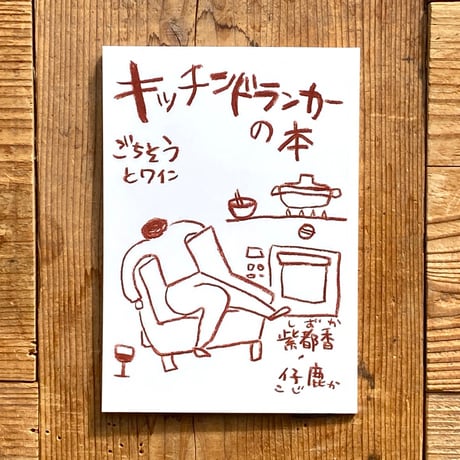 キッチンドランカー
の本
ごちそう
とワイン
しずか
紫都香
・
仔鹿
こじか